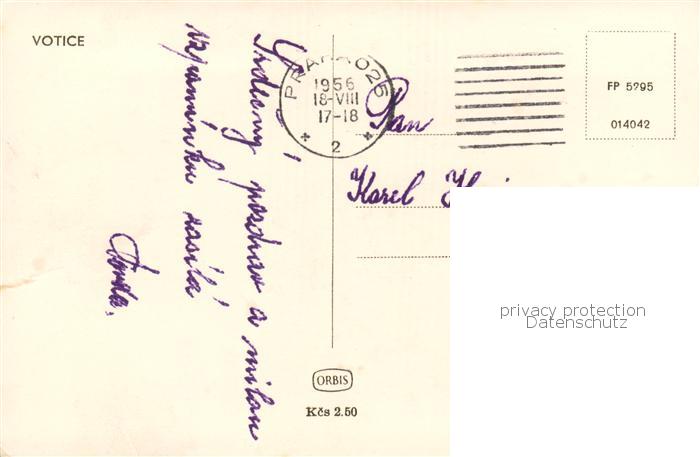 VOTICE
Srdečný pozdrav a milou
vzpomínku zasílá
PRAHA 025
1956
18-VIII
17-18
* 2 *
FP 5295
014042
Pan
Karel
privacy protection
Datenschutz
ORBIS
Kčs 2.50